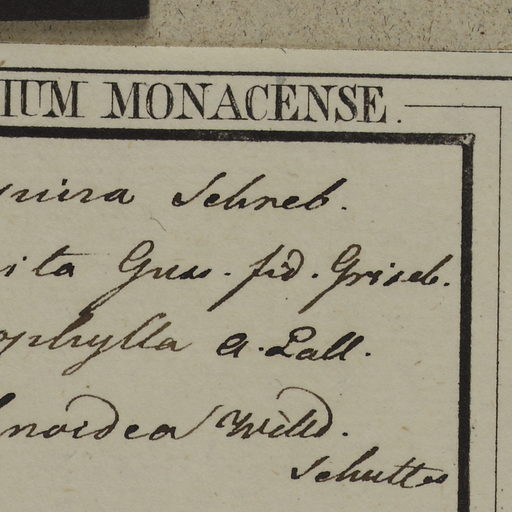 IUM MONACENSE.
uira Schreb.
ita Guss. fid. Griseb.
ophylla A. Lall.
lnoidea Willd.
Schultes